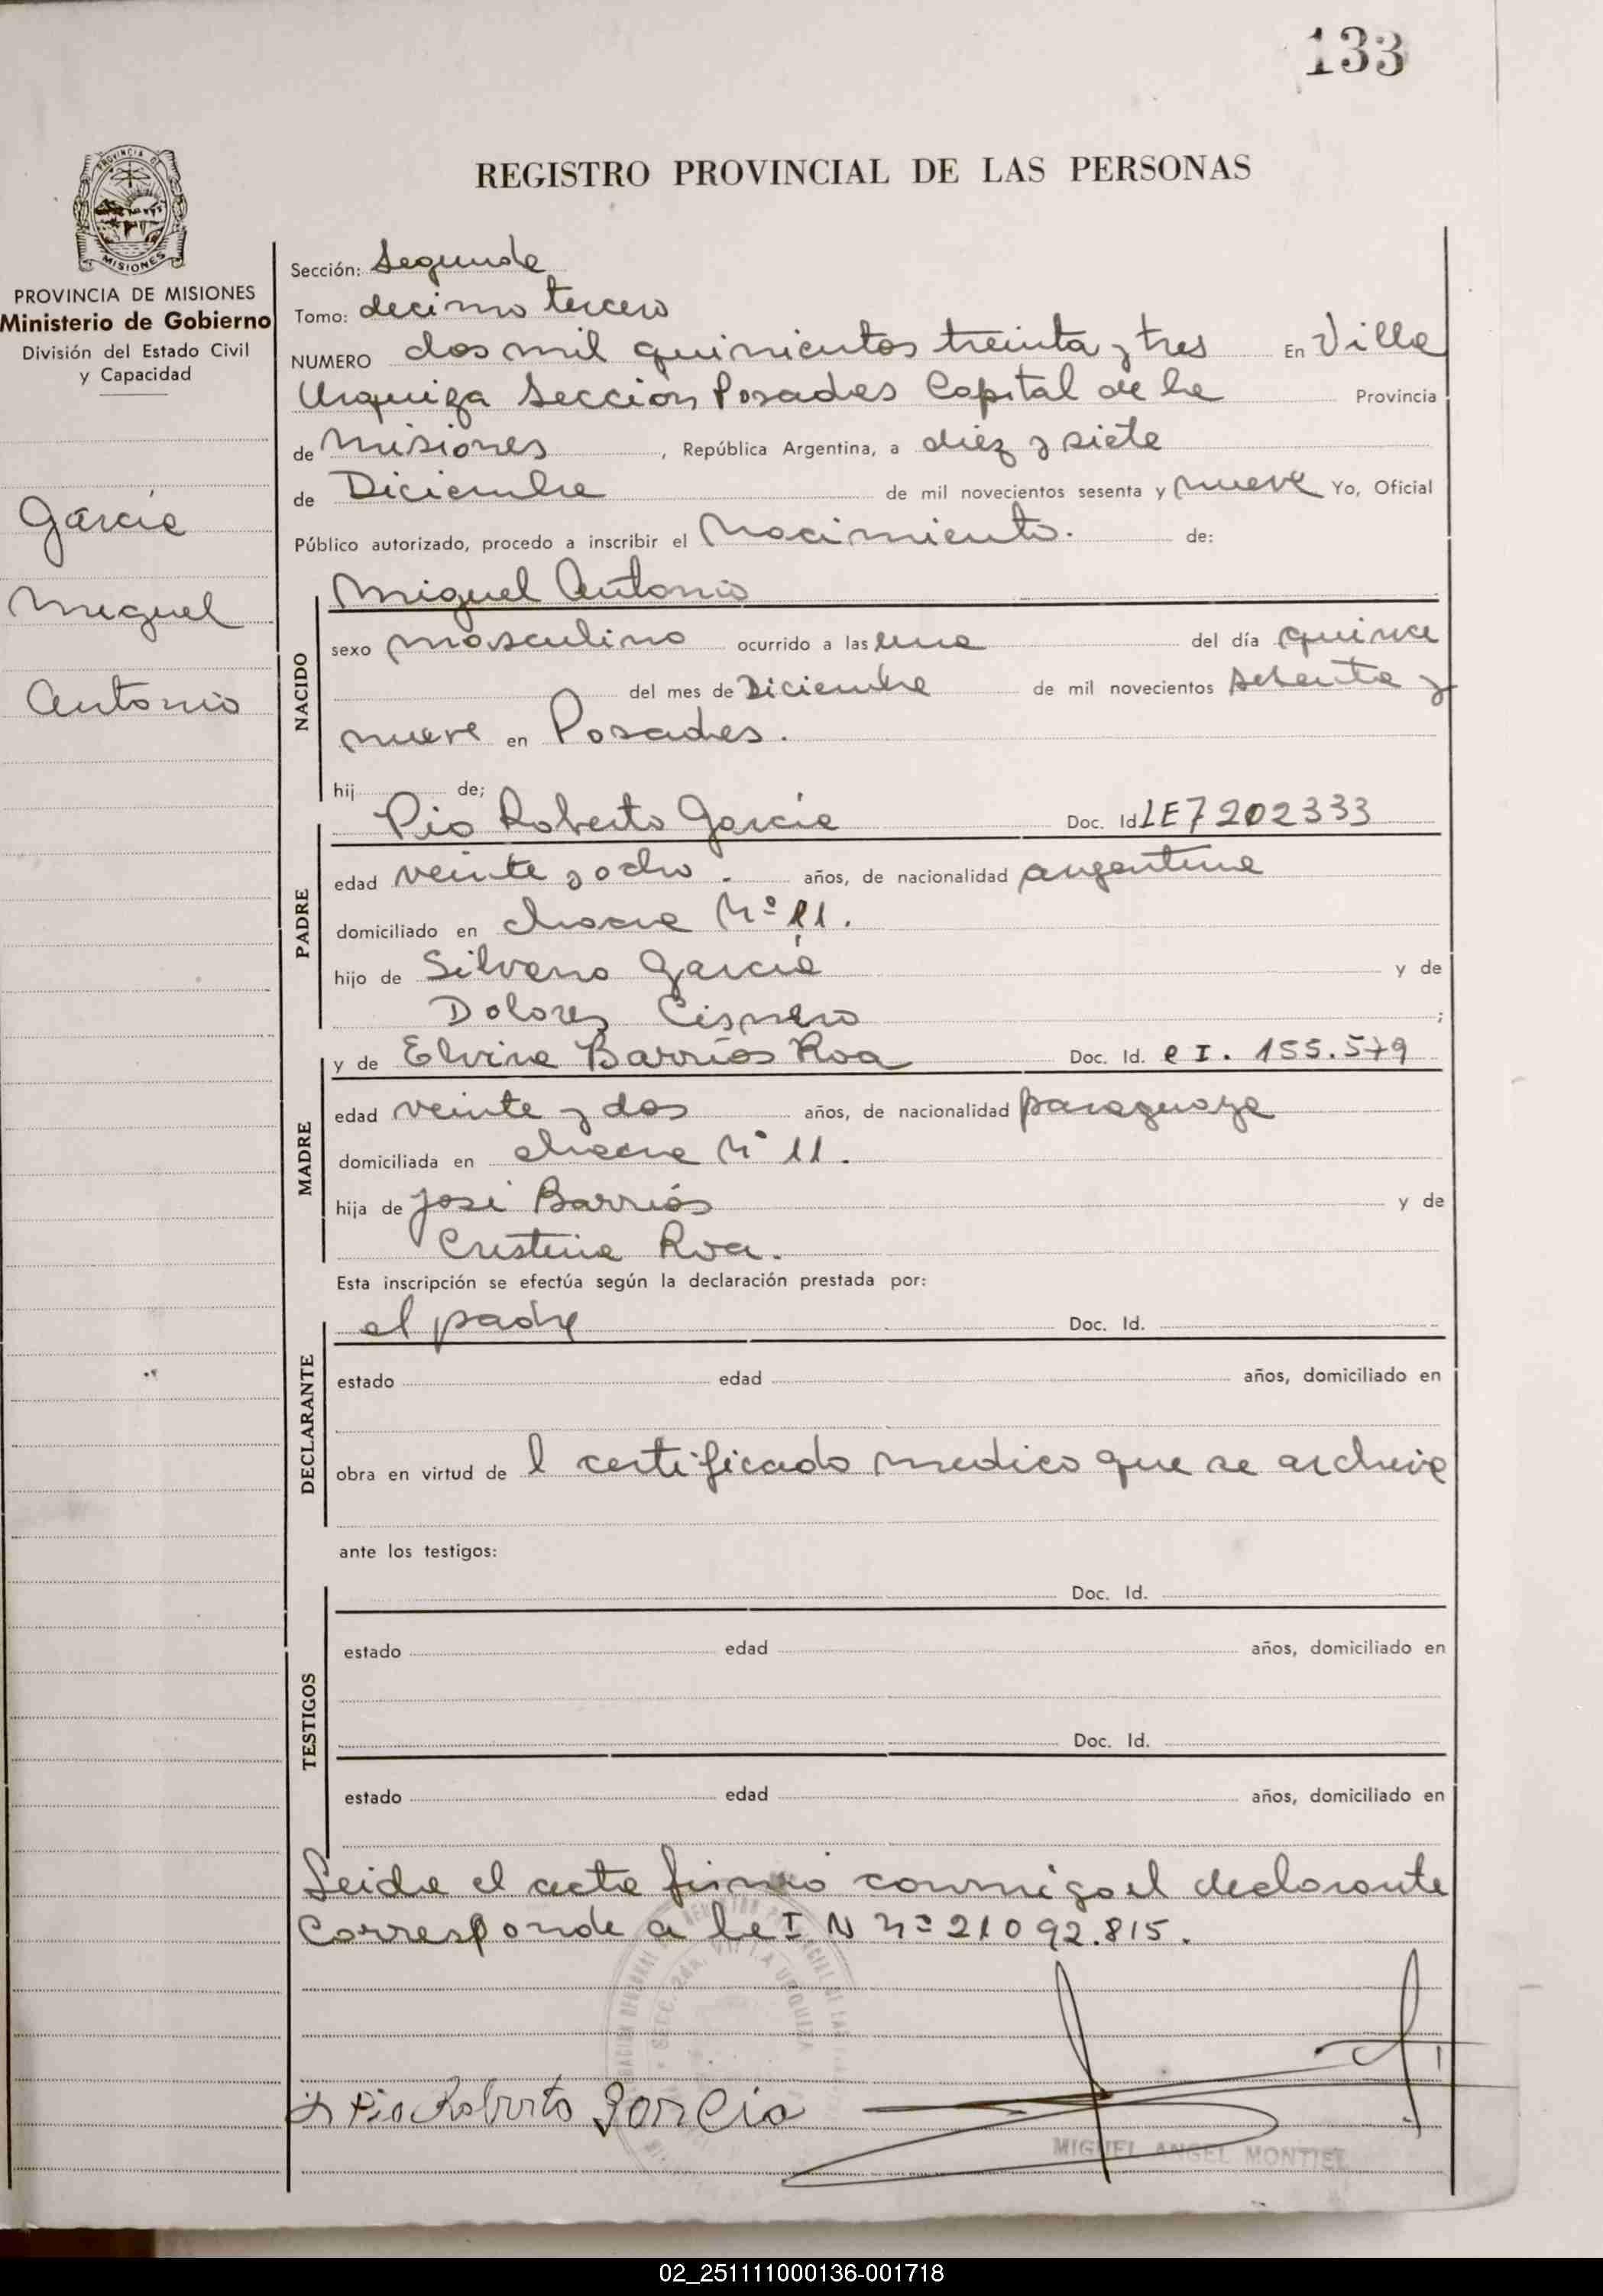 133
PROVINCIA DE
MISIONES
PROVINCIA DE MISIONES
Ministerio de Gobierno
División del Estado Civil
y Capacidad
García
Miguel
Antonio
REGISTRO PROVINCIAL DE LAS PERSONAS
Sección: Segunda
Tomo: decimo tercero
NUMERO dos mil quinientos treinta y tres En Villa
Urquiza Sección Posadas Capital de la Provincia
de Misiones, República Argentina, a diez y siete
de Diciembre de mil novecientos sesenta y nueve Yo, Oficial
Público autorizado, procedo a inscribir el Nacimiento. de:
NACIDO
Miguel Antonio
sexo masculino ocurrido a las una del día quince
del mes de Diciembre de mil novecientos sesenta y
nueve en Posadas.
hij de;
PADRE
Pio Roberto García Doc. Id LE 7202333
edad veinte y ocho. años, de nacionalidad argentina
domiciliado en chacra Nº 11.
hijo de Silverio García y de
Dolores Cisnero ;
MADRE
y de Elvira Barrios Roa Doc. Id. C I. 155.579
edad veinte y dos años, de nacionalidad paraguaya
domiciliada en chacra Nº 11.
hija de José Barrios y de
Cristina Roa.
Esta inscripción se efectúa según la declaración prestada por:
DECLARANTE
el padre Doc. Id.
estado edad años, domiciliado en
obra en virtud de l certificado medico que se archiva
ante los testigos:
TESTIGOS
Doc. Id.
estado edad años, domiciliado en
Doc. Id.
estado edad años, domiciliado en
Leida el acta firmó conmigo el declarante
Corresponde a la I. N nº 21092.815.
SECC. 24a. VILLA URQUIZA
Pio Roberto Garcia
MIGUEL ANGEL MONTIEL
02_251111000136-001718